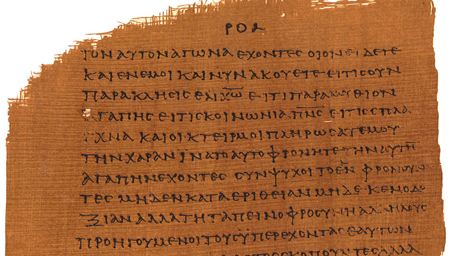 ΡΟΑ
ΤΟΝΑΥΤΟΝΑΓΩΝΑΕΧΟΝΤΕϹΟΙΟΝΕΙΔΕΤΕ
ΚΑΙΕΝΕΜΟΙΚΑΙΝΥΝΑΚΟΥΕΤΕΕΙΤΙϹΟΥΝ
ΠΑΡΑΚΛΗϹΙϹΕΝΧ̅Ω̅ΕΙΤΙΠΑΡΑΜΥΘΙΟΝ
ΑΓΑΠΗϹΕΙΤΙϹΚΟΙΝΩΝΙΑΠ̅Ν̅Ϲ̅ΕΙΤΙϹϹΠΛΑ
ΓΧΝΑΚΑΙΟΙΚΤΕΙΡΜΟΙΠΛΗΡΩϹΑΤΕΜΟΥ
ΤΗΝΧΑΡΑΝΙΝΑΤΟΑΥΤΟΦΡΟΝΗΤΕΤΗΝΑΥΤΗ̅
ΑΓΑΠΗΝΕΧΟΝΤΕϹϹΥΝΨΥΧΟΙΤΟΕΝΦΡΟΝΟΥΝ
ΤΕϹΜΗΔΕΝΚΑΤΕΡΙΘΕΙΑΝΜΗΔΕΚΕΝΟΔΟ
ΞΙΑΝΑΛΛΑΤΗΤΑΠΕΙΝΟΦΡΟϹΥΝΗΑΛΛΗΛΟΥϹ
ΠΡΟΗΓΟΥΜΕΝΟΙΤΟΥϹΫΠΕΡΕΧΟΝΤΑϹΕΑΥΤΩΝ
ϹΚΟΠΟΥΝΤΕϹΑΛΛΑ